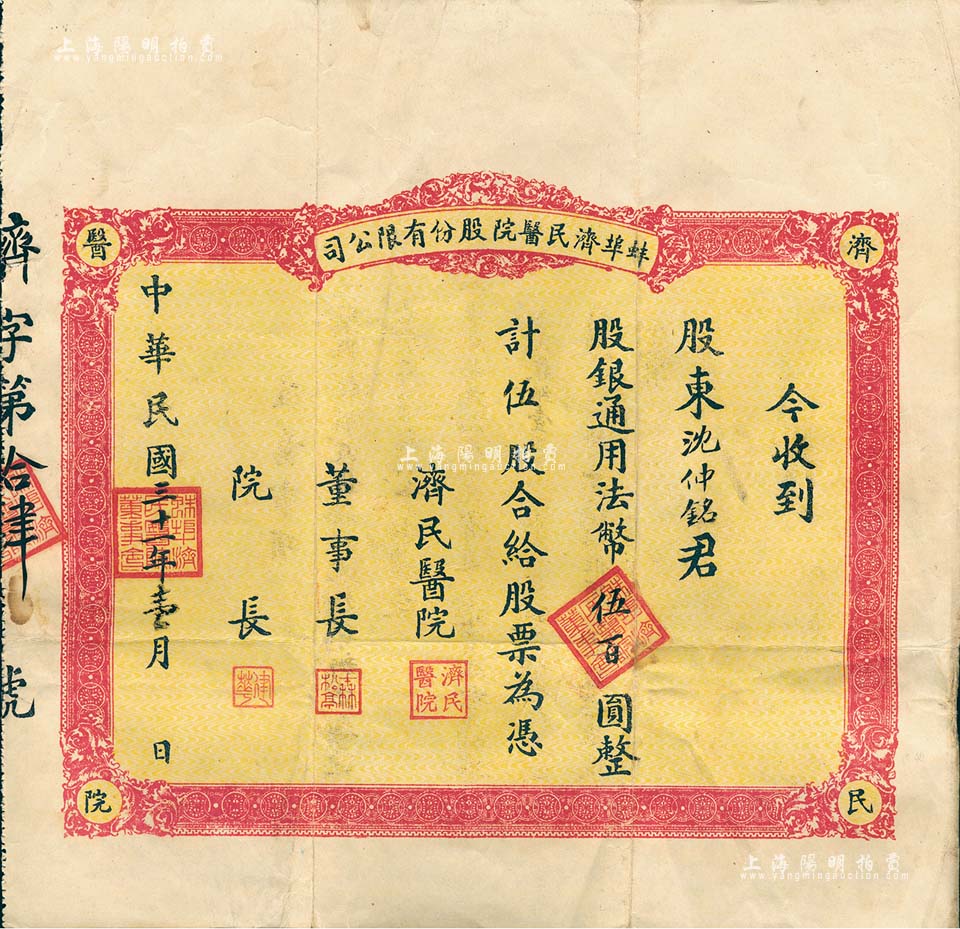 上海陽明拍賣
www.yangmingauction.com
蚌埠濟民醫院股份有限公司
濟
民
醫
院
今收到
股東沈仲銘君
股銀通用法幣伍百圓整
計伍股合給股票為憑
濟民醫院
濟民醫院
董事長
院長
中華民國三十一年壹月 日
濟字第拾肆號
上海陽明拍賣
www.yangmingauction.com
上海陽明拍賣
www.yangmingauction.com